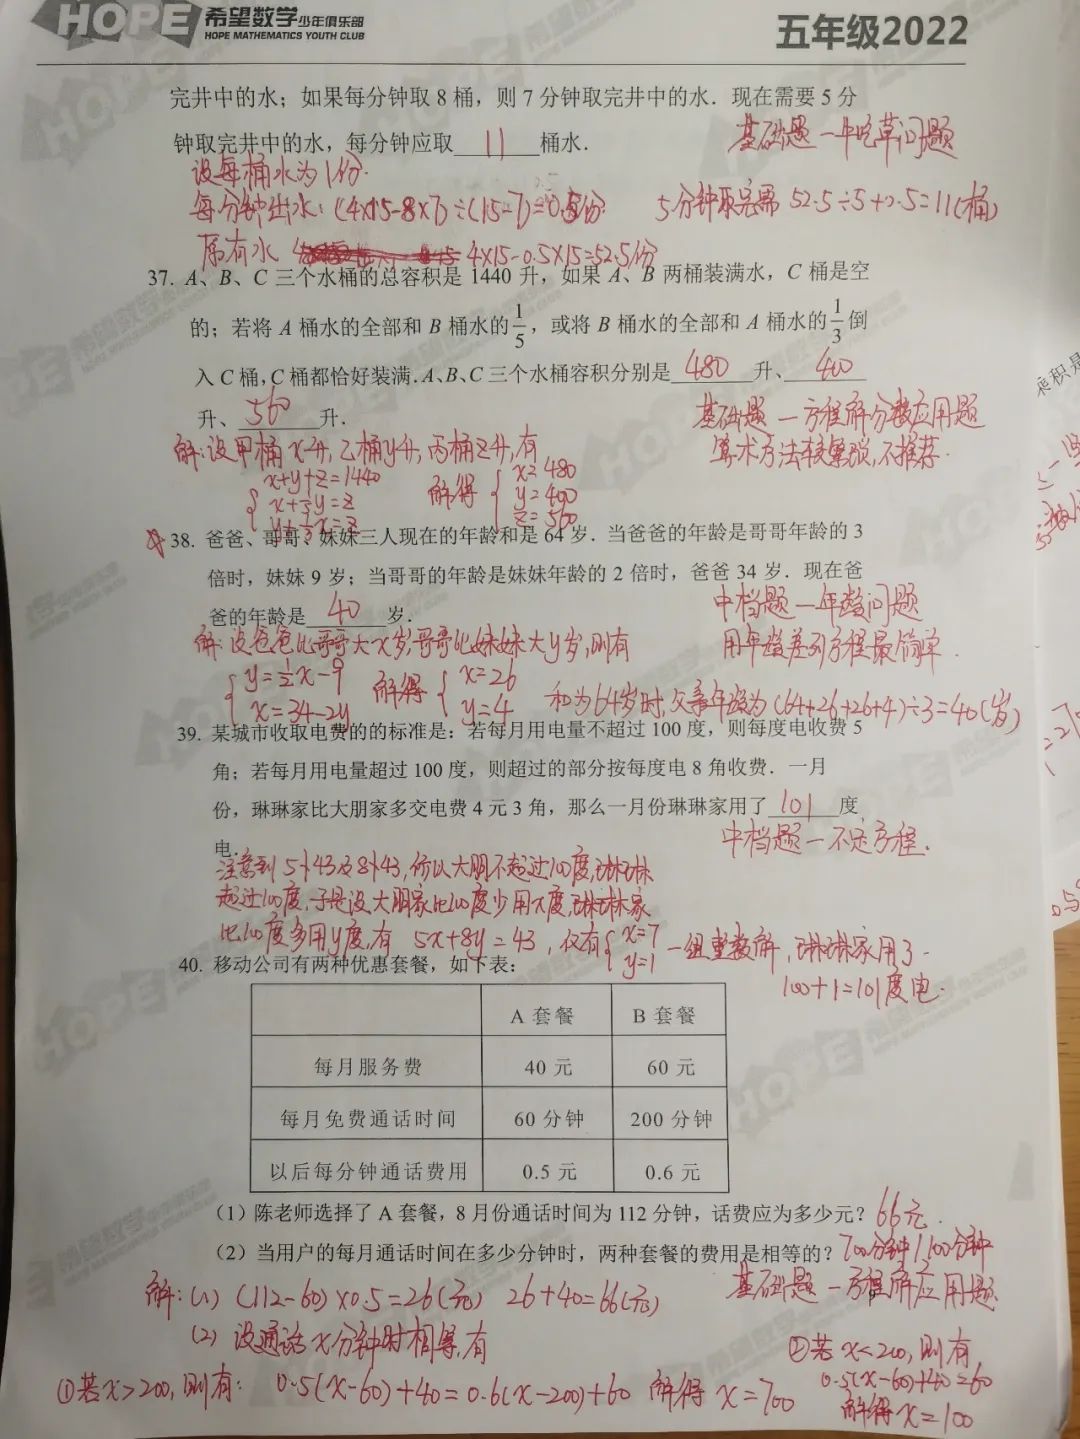 HOPE 希望数学少年俱乐部
HOPE MATHEMATICS YOUTH CLUB
五年级2022
完井中的水；如果每分钟取 8 桶，则 7 分钟取完井中的水．现在需要 5 分
钟取完井中的水，每分钟应取 11 桶水．
基础题—牛吃草问题
设每桶水为1份.
每分钟出水：(4×15-8×7)÷(15-7)=0.5份.
5分钟取完需 52.5÷5+0.5=11(桶)
原有水 4×15-0.5×15=52.5份
37. A、B、C 三个水桶的总容积是 1440 升，如果 A、B 两桶装满水，C 桶是空
的；若将 A 桶水的全部和 B 桶水的 1/5，或将 B 桶水的全部和 A 桶水的 1/3 倒
入 C 桶，C 桶都恰好装满．A、B、C 三个水桶容积分别是 480 升、 400
升、 560 升．
基础题—方程解分数应用题
算术方法较繁琐,不推荐.
解:设甲桶x升,乙桶y升,丙桶z升,有
x+y+z=1440
x+1/5y=z
y+1/3x=z
解得
x=480
y=400
z=560
38. 爸爸、哥哥、妹妹三人现在的年龄和是 64 岁．当爸爸的年龄是哥哥年龄的 3
倍时，妹妹 9 岁；当哥哥的年龄是妹妹年龄的 2 倍时，爸爸 34 岁．现在爸
爸的年龄是 40 岁．
中档题—年龄问题
用年龄差列方程最简单.
解:设爸爸比哥哥大x岁,哥哥比妹妹大y岁,则有
y=1/2x-9
x=34-2y
解得
x=26
y=4
和为64岁时,父亲年龄为(64+26+26+4)÷3=40(岁)
39. 某城市收取电费的的标准是：若每月用电量不超过 100 度，则每度电收费 5
角；若每月用电量超过 100 度，则超过的部分按每度电 8 角收费．一月
份，琳琳家比大朋家多交电费 4 元 3 角，那么一月份琳琳家用了 101 度
电．
中档题—不定方程.
注意到 5∤43及8∤43,所以大朋不超过100度,琳琳
超过100度,于是设大朋家比100度少用x度,琳琳家
比100度多用y度,有 5x+8y=43, 仅有 x=7 y=1 一组整数解,琳琳家用了
100+1=101度电.
40. 移动公司有两种优惠套餐，如下表：
A 套餐 B 套餐
每月服务费 40 元 60 元
每月免费通话时间 60 分钟 200 分钟
以后每分钟通话费用 0.5 元 0.6 元
（1）陈老师选择了 A 套餐，8 月份通话时间为 112 分钟，话费应为多少元？66元.
（2）当用户的每月通话时间在多少分钟时，两种套餐的费用是相等的？700分钟/100分钟
基础题—方程解应用题
解:(1) (112-60)×0.5=26(元) 26+40=66(元)
(2) 设通话x分钟时相等,有
①若x>200,则有: 0.5(x-60)+40=0.6(x-200)+60 解得 x=700
②若x<200,则有
0.5(x-60)+40=60
解得x=100